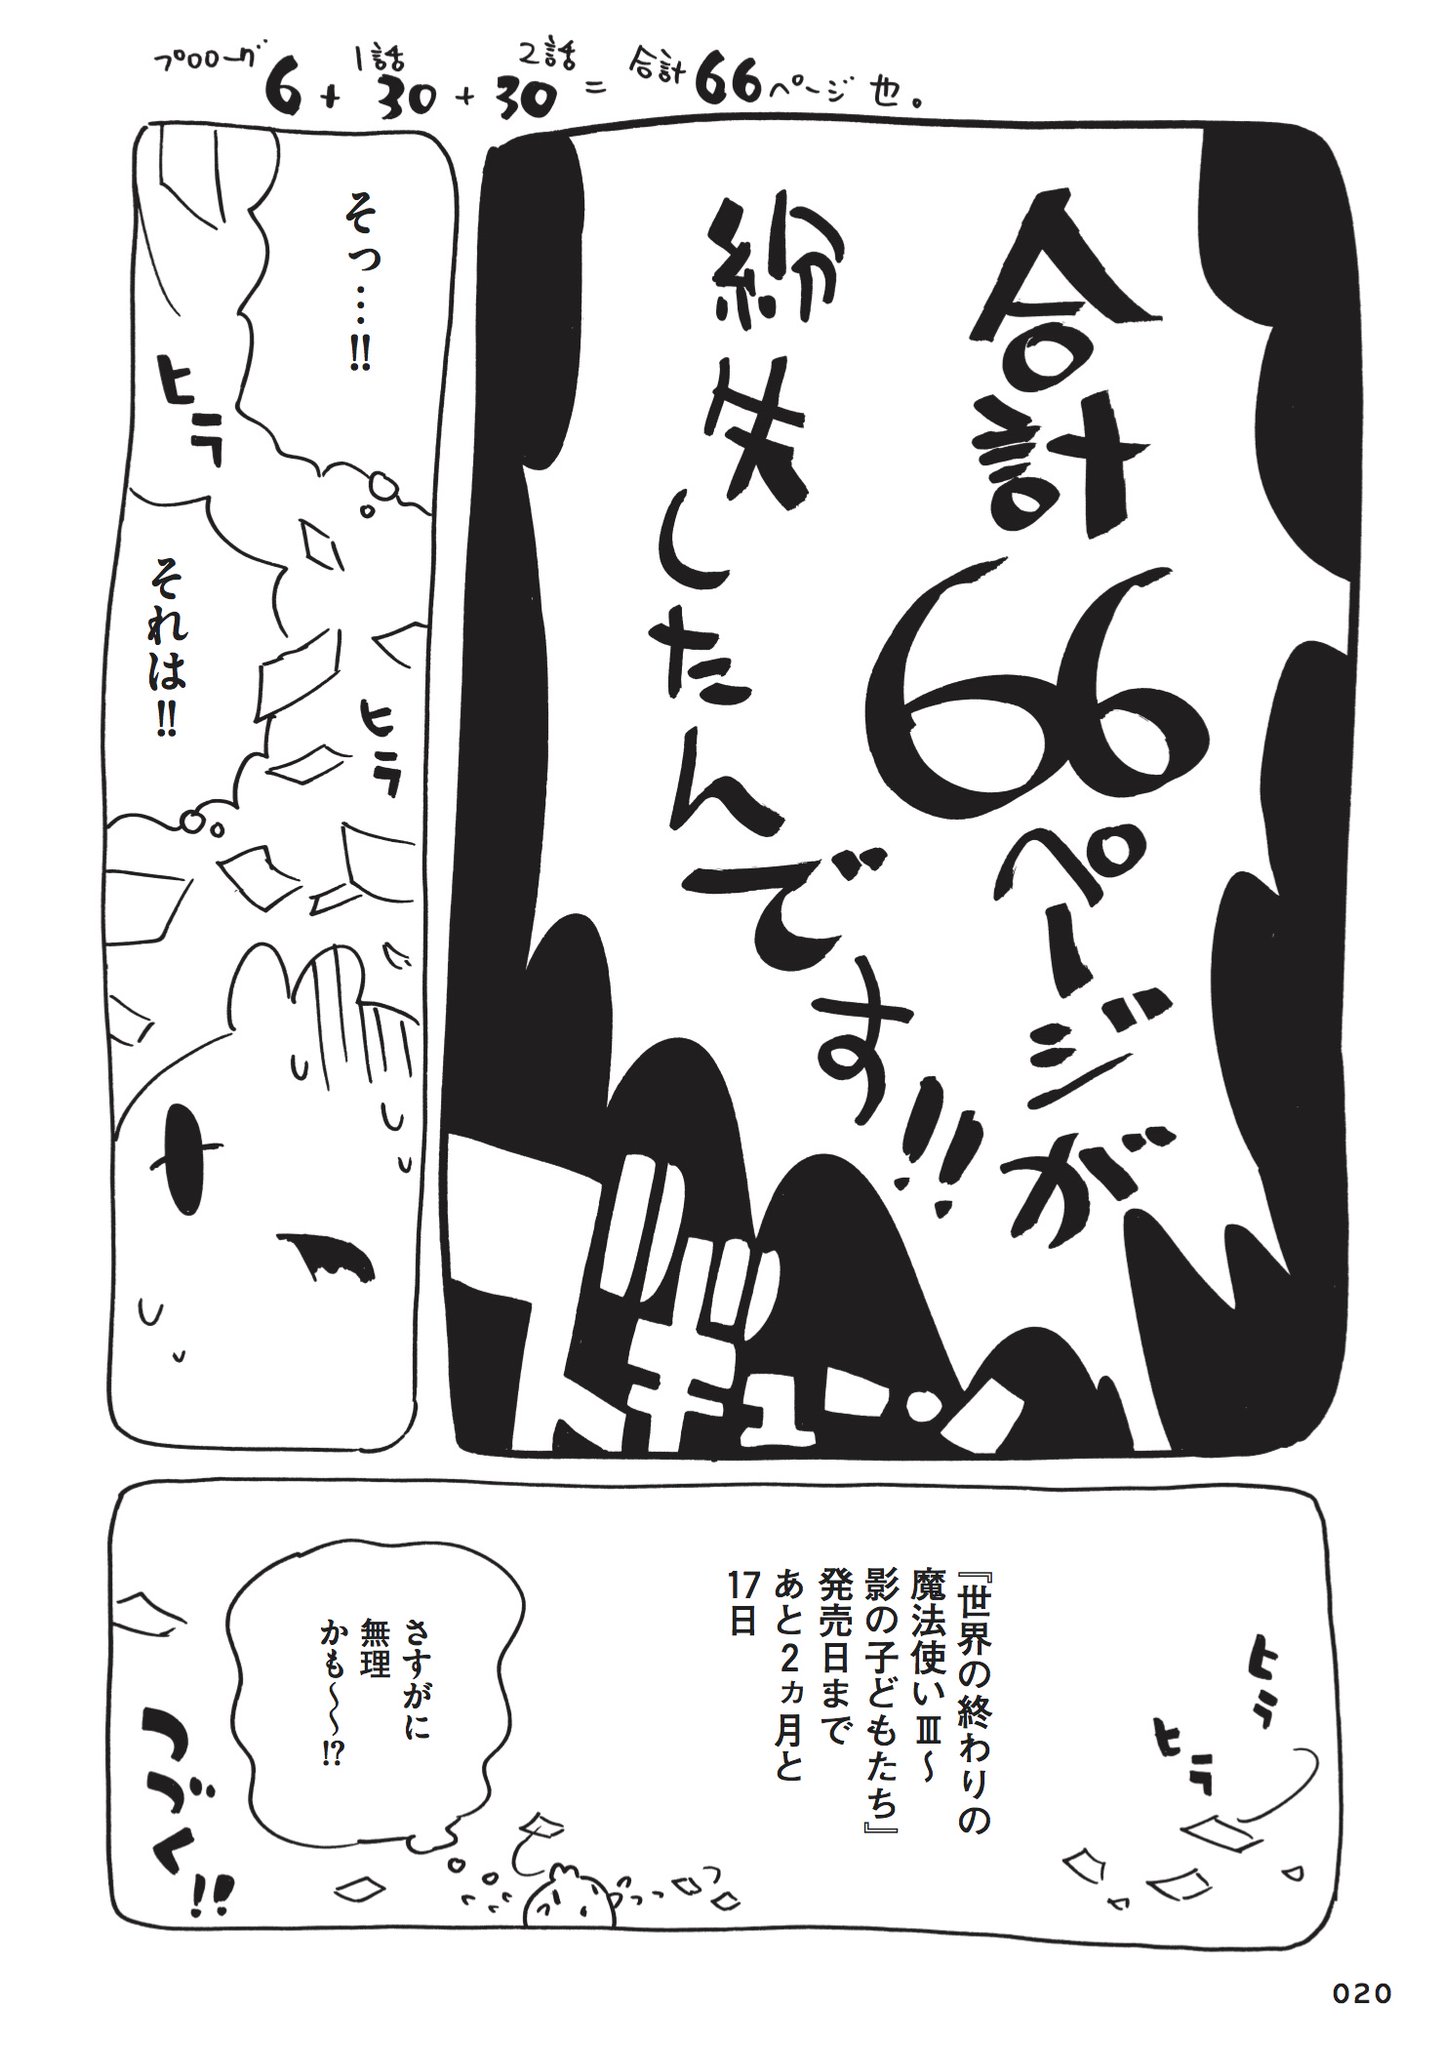 プロローグ 6 + 1話 30 + 2話 30 = 合計66ページ也。
合計66ページが
紛失したんです!!
ズギューン
そっ…!!
ヒラ
それは!!
ヒラ
『世界の終わりの
魔法使いⅢ〜
影の子どもたち』
発売日まで
あと2ヵ月と
17日
ヒラ
ヒラ
さすがに
無理
かも〜〜!?
つづく!!
020